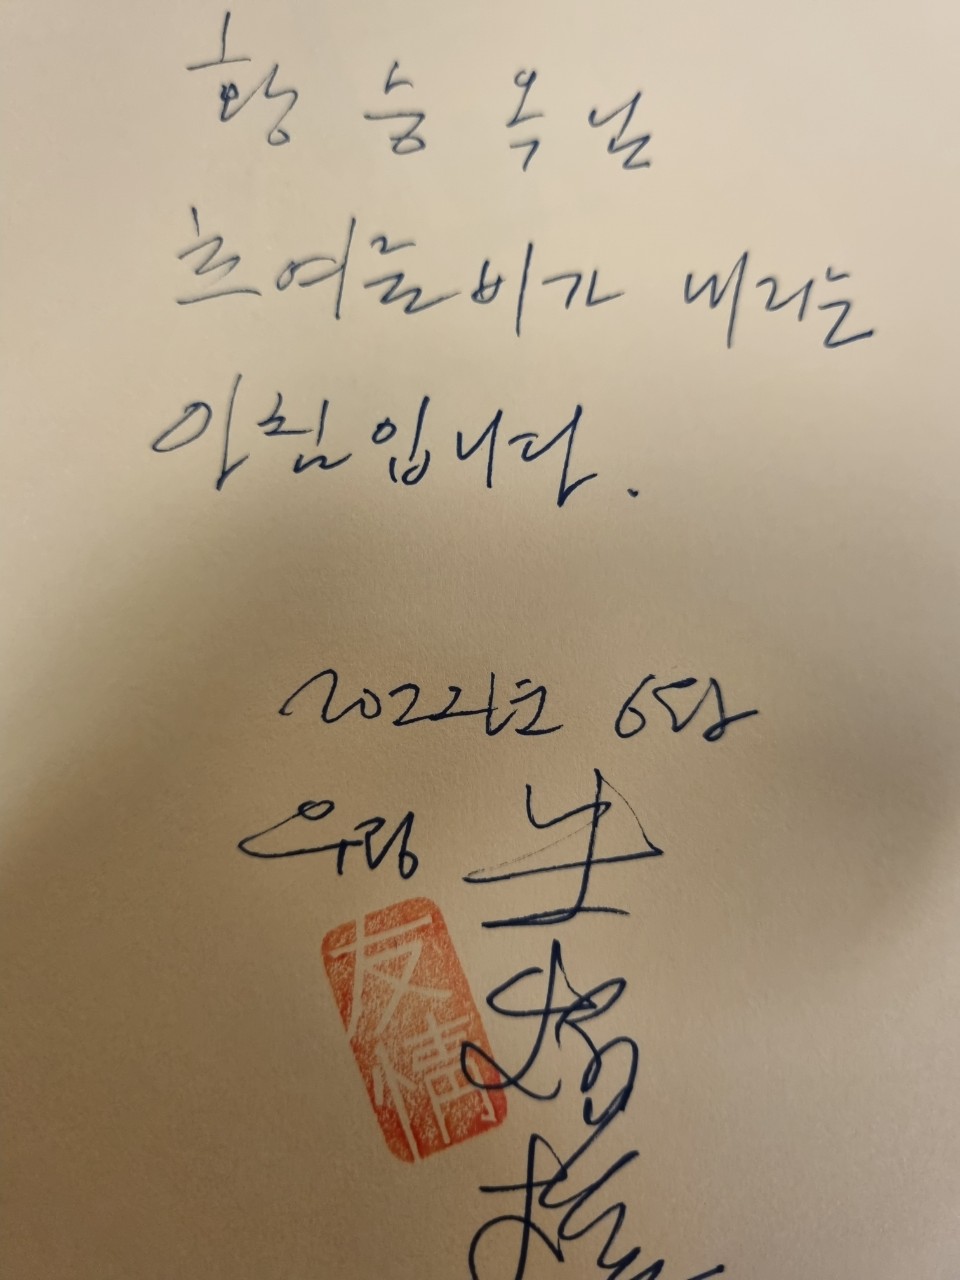 황 승 옥 님
초여름비가 내리는
아침입니다.
2022년 6월
우정
友情